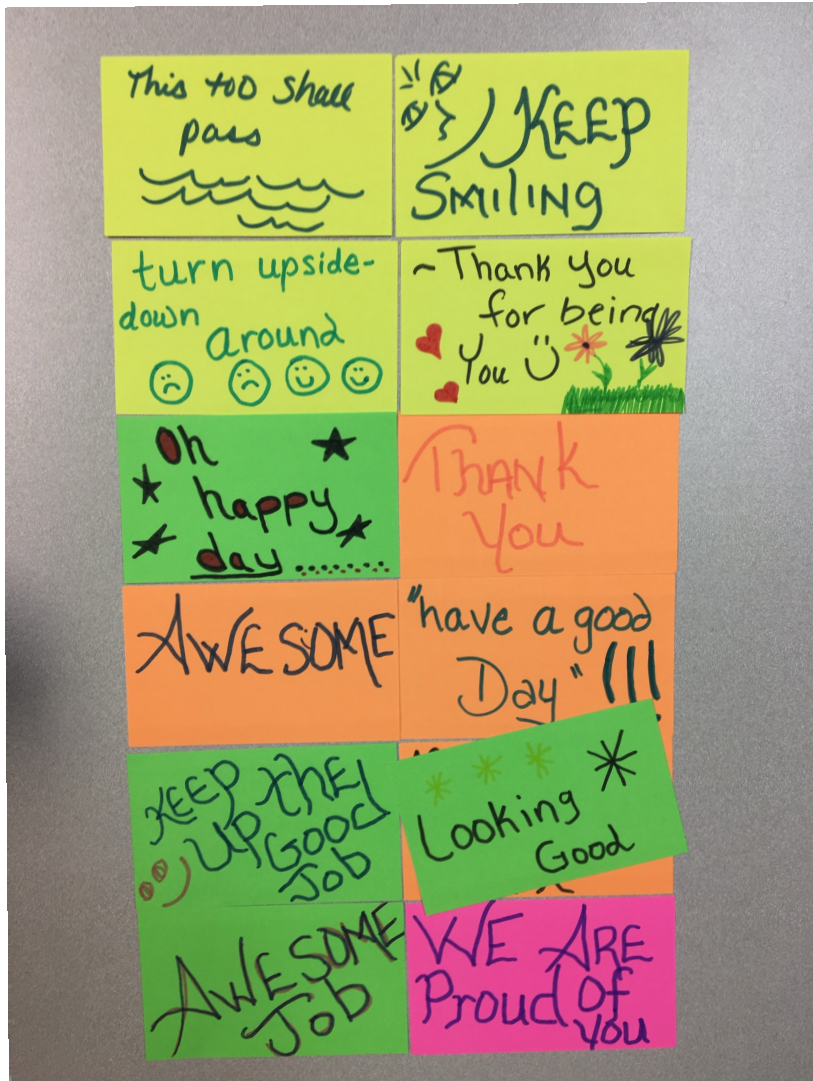 This too shall
pass
KEEP
SMiliNg
turn upside-
down
around
~Thank you
for being
You
Oh
happy
day........
THANK
You
AWESOME
"have a good
Day" !!!
KEEP the
UP Good
Job
Looking
Good
AWESOME
Job
WE ARE
Proud Of
You